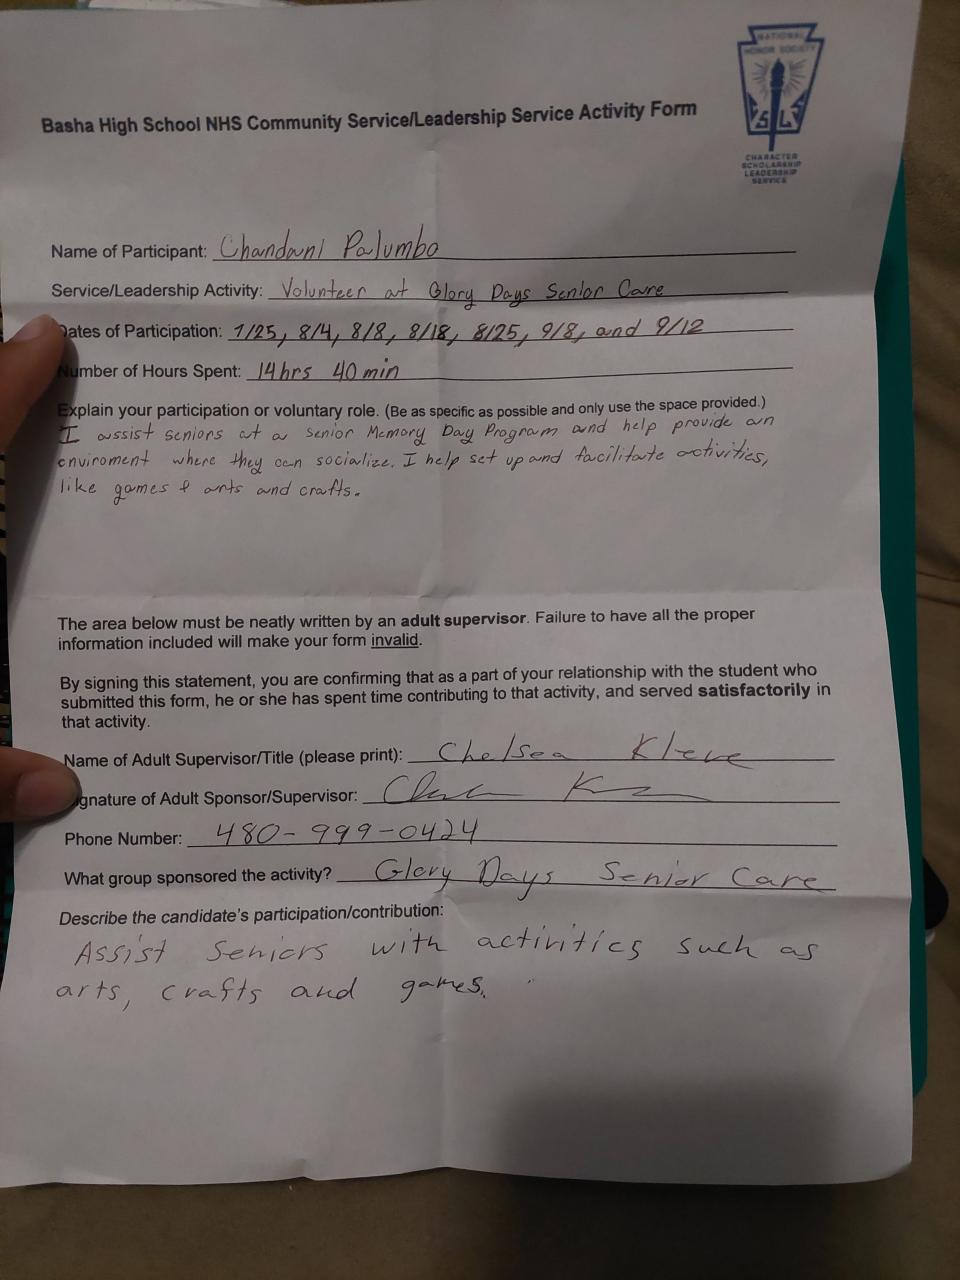 NATIONAL
HONOR SOCIETY
S L
CHARACTER
SCHOLARSHIP
LEADERSHIP
SERVICE
Basha High School NHS Community Service/Leadership Service Activity Form
Name of Participant: Chandani Palumbo
Service/Leadership Activity: Volunteer at Glory Days Senior Care
Dates of Participation: 7/25, 8/4, 8/8, 8/18, 8/25, 9/8, and 9/12
Number of Hours Spent: 14hrs 40 min
Explain your participation or voluntary role. (Be as specific as possible and only use the space provided.)
I assist seniors at a Senior Memory Day Program and help provide an
enviroment where they can socialize. I help set up and facilitate activities,
like games & arts and crafts.
The area below must be neatly written by an adult supervisor. Failure to have all the proper
information included will make your form invalid.
By signing this statement, you are confirming that as a part of your relationship with the student who
submitted this form, he or she has spent time contributing to that activity, and served satisfactorily in
that activity.
Name of Adult Supervisor/Title (please print): Chelsea Kleve
Signature of Adult Sponsor/Supervisor:
Phone Number: 480-999-0424
What group sponsored the activity? Glory Days Senior Care
Describe the candidate's participation/contribution:
Assist Seniors with activities such as
arts, crafts and games.